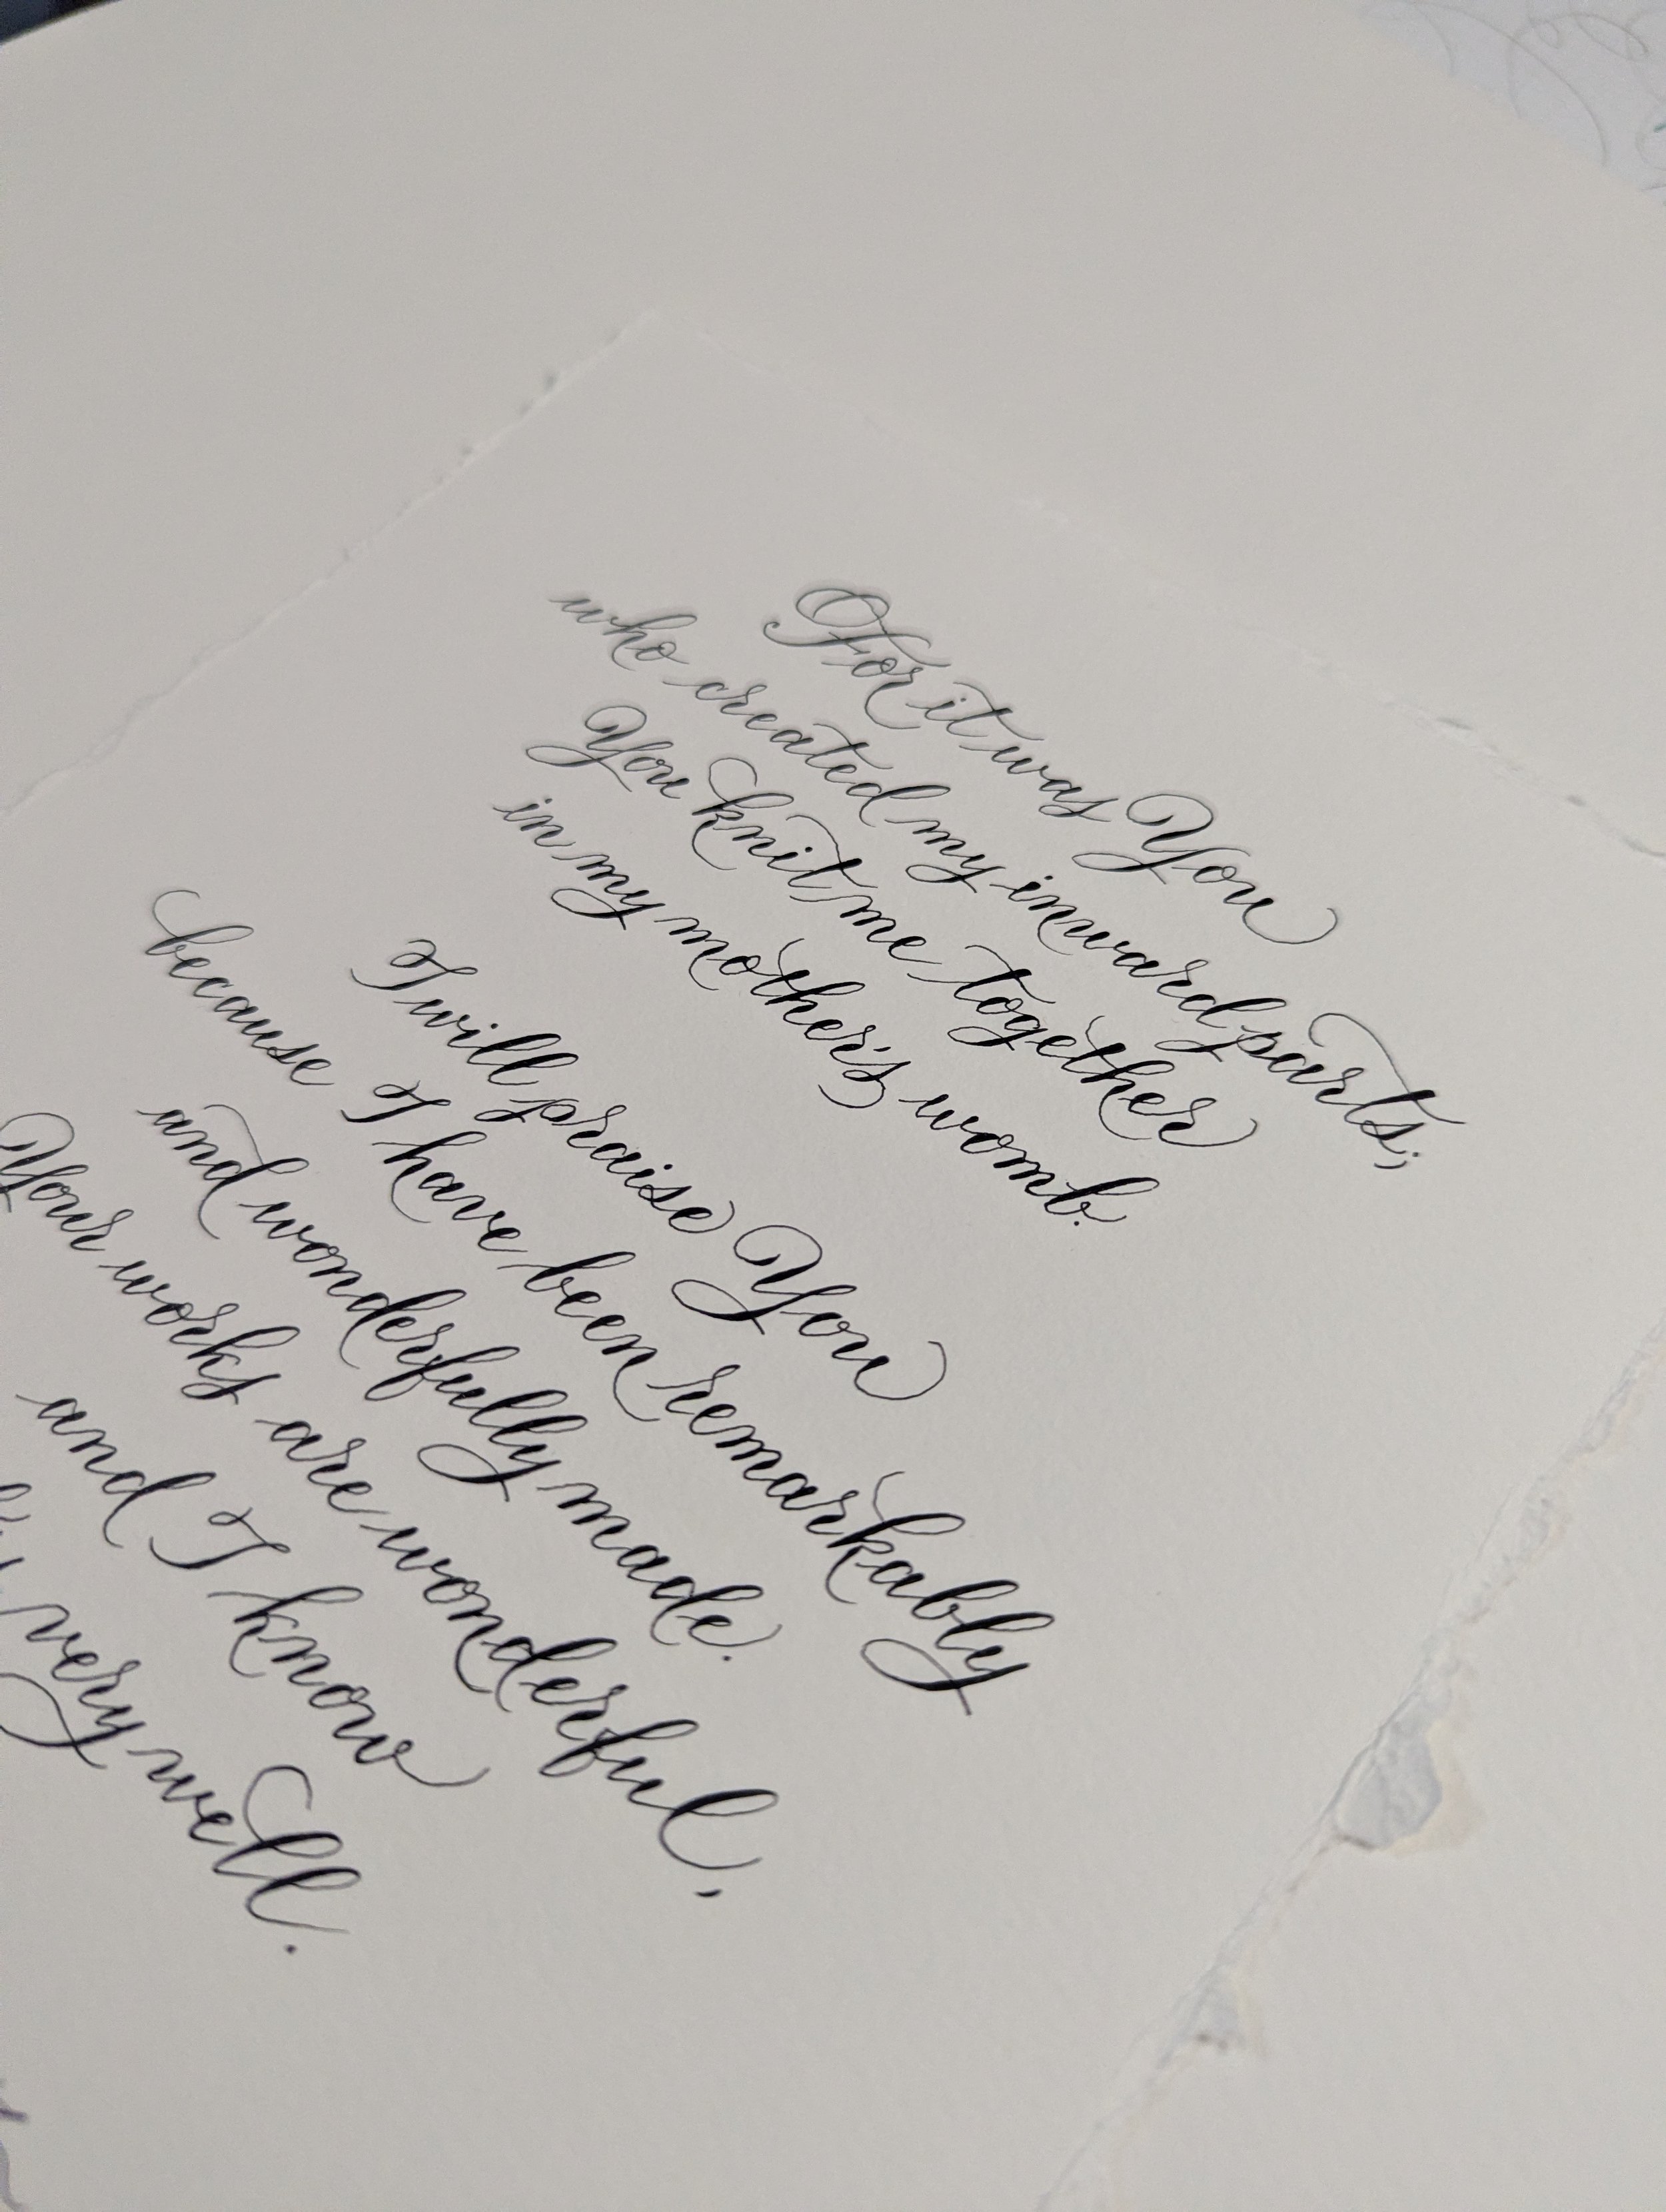 For it was You
who created my inward parts;
You knit me together
in my mother's womb.
I will praise You
because I have been remarkably
and wonderfully made.
Your works are wonderful,
and I know
very well.